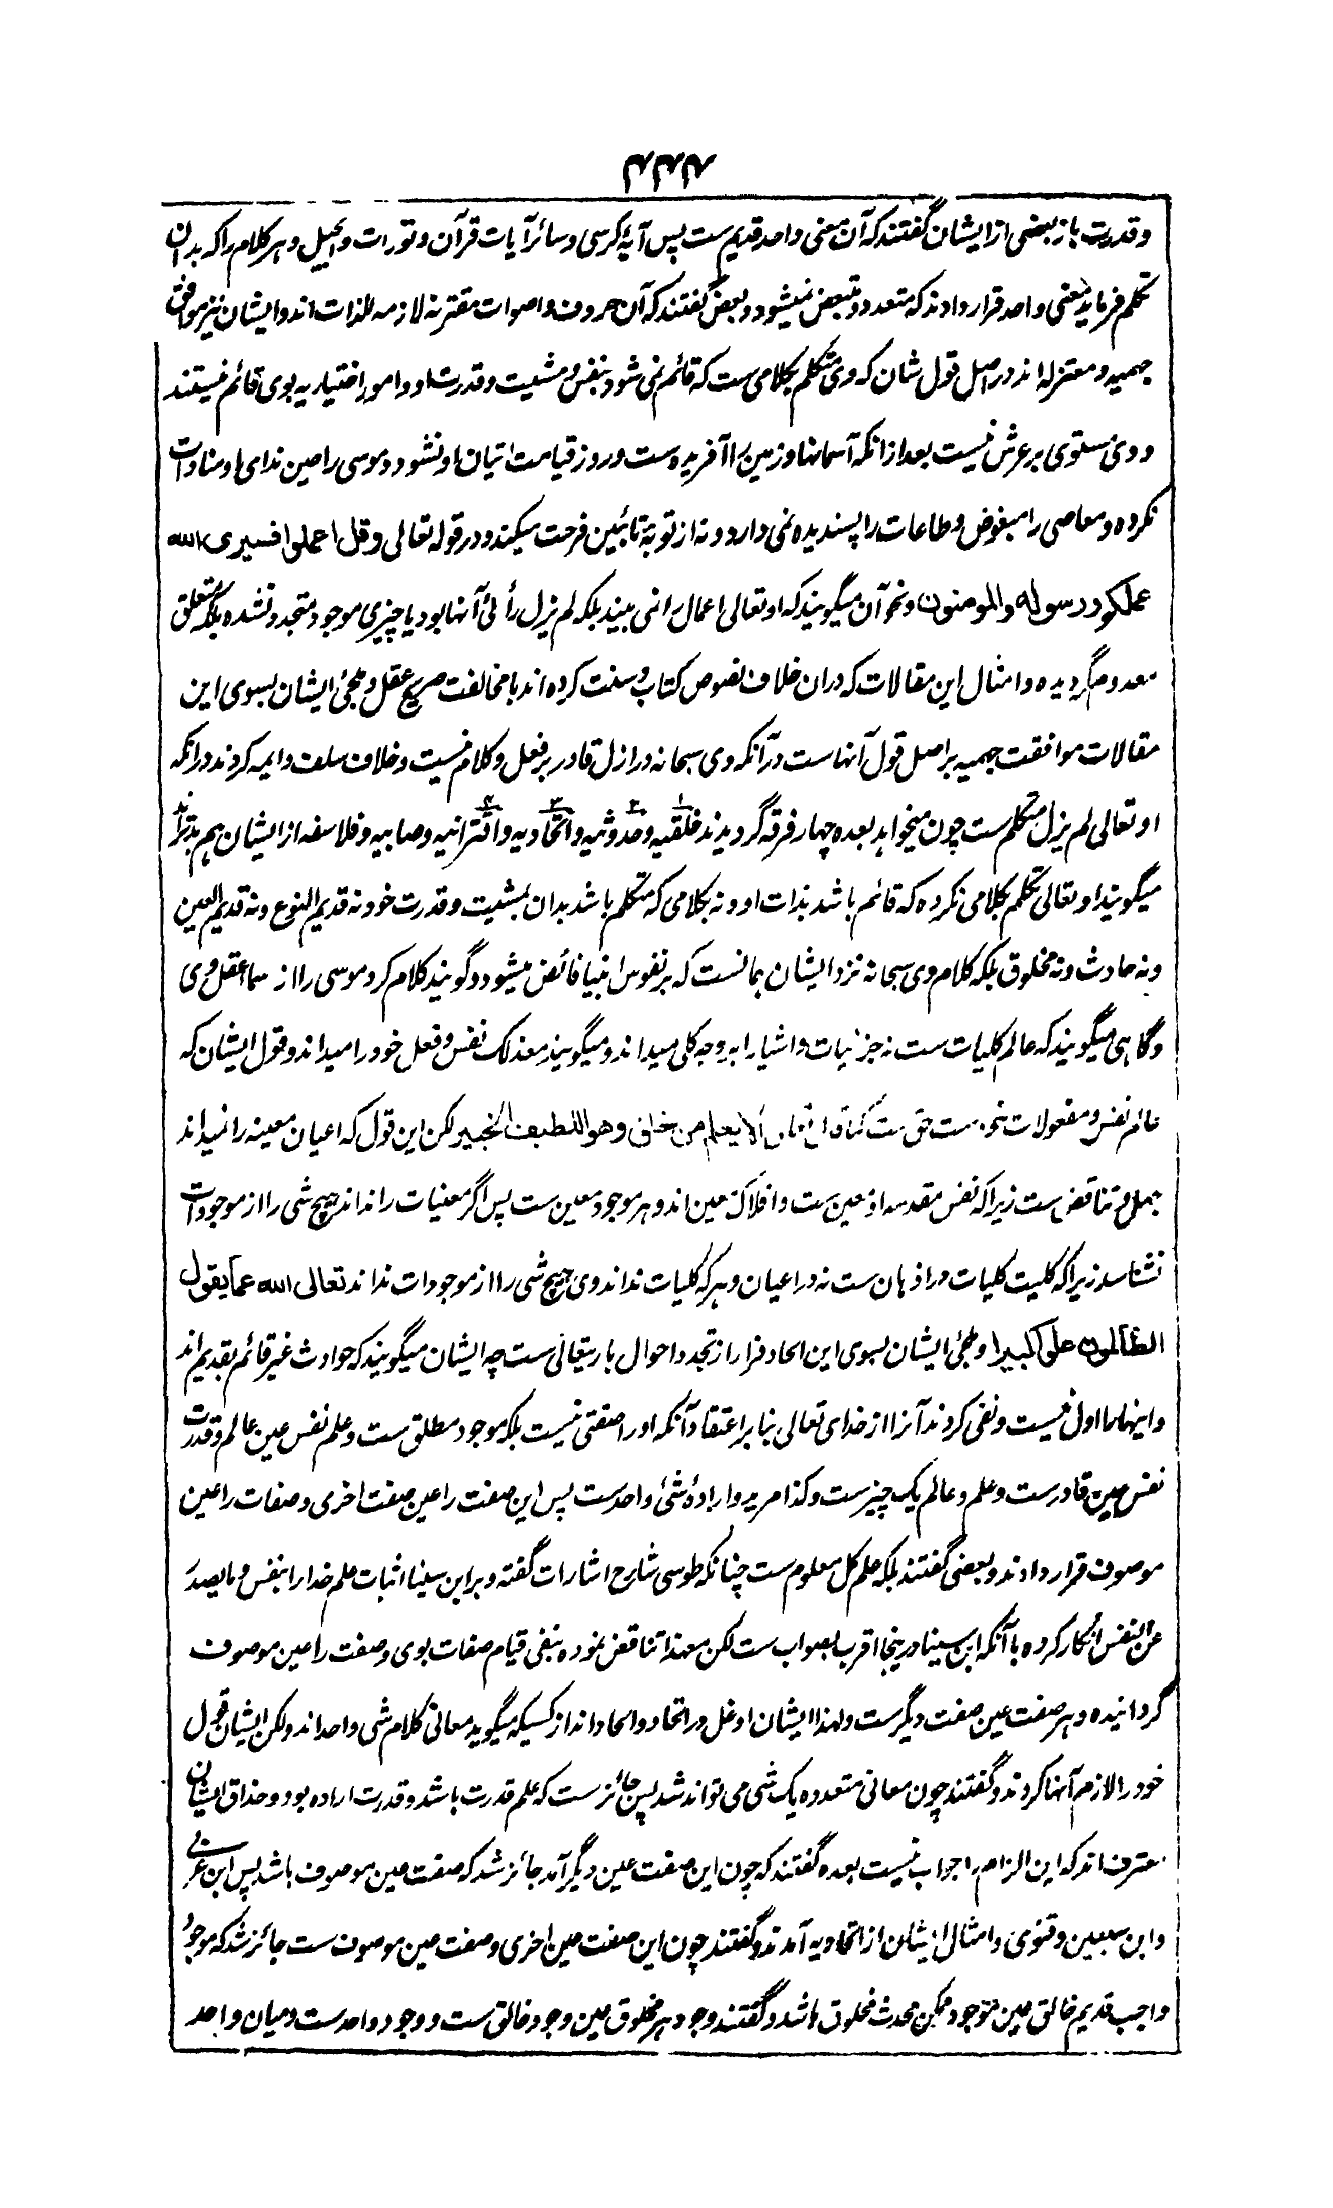 ۴۴۴
وقدرت باز بعضی از ایشان گفتند که آن معنی واحد قدیم ست پس آیۀ کرسی و سائر آیات قرآن و تورات و انجیل و هر کلام را که بدان
تکلم فرماید بمعنی واحد قرار دادند که متعدد و متبعض نمیشود و بعض گفتند که آن حروف و اصوات مقترنه لازمه للذات اند و ایشان نیز موافق
جهمیه و معتزله اند در اصل قول شان که وی متکلم بکلامی ست که قائم نمی شود بنفس و مشیت و قدرت او و امور اختیاریه بوی قائم نیستند
و وی مستوی بر عرش نیست بعد از انکه آسمانها و زمین را آفریده ست و روز قیامت اتیان او نشود و موسی را حین ندای او منادات
نکرده و معاصی را مبغوض و طاعات را پسندیده نمی دارد و نه از توبۀ تائبین فرحت میکند و در قوله تعالی وقل اعملوا فسیری الله
عملکم ورسوله والمومنون و نحو آن میگویند که او تعالی اعمال را نمی بیند بلکه لم یزل رائی آنها بود یا چیزی موجود متجدد نشده بلکه تعلق
معدوم گردیده و امثال این مقالات که دران خلاف نصوص کتاب و سنت کرده اند با مخالفت صریح عقل و ملجئ ایشان بسوی این
مقالات موافقت جهمیه بر اصل قول آنهاست در آنکه وی سبحانه در ازل قادر بر فعل و کلام نیست و خلاف سلف و ایمه کردند در انکه
او تعالی لم یزل متکلم ست چون میخواهد بعده چهار فرقه گردیدند خلقیه و حدوثیه و اتحادیه و اقترانیه و صابیه و فلاسفه از ایشان هم بدتراند
میگویند او تعالی تکلم بکلامی نکرده که قائم باشد بذات او و نه بکلامی که متکلم باشد بدان بمشیت و قدرت خود نه قدیم النوع و نه قدیم العین
و نه حادث و نه مخلوق بلکه کلام وی سبحانه نزد ایشان همانست که بر نفوس انبیا فائض میشود و گویند کلام کرد موسی را از سما عقل وی
و گاهی میگویند که عالم کلیات ست نه جزئیات و اشیا را بر وجه کلی میداند و میگویند معذلک نفس و فعل خود را میداند و قول ایشان که
عالم نفس و مفعولات خود ست حق ست کما قال تعالی الا یعلم من خلق وهو اللطیف الخبیر لکن این قول که اعیان معینه را نمیداند
جهل و تناقض ست زیرا که نفس مقدسه او معین ست و افلاک معین اند و هر موجود معین ست پس اگر معینات را نداند هیچ شی را از موجودات
نشناسد زیرا که کلیت کلیات در اذهان ست نه در اعیان و هر که کلیات نداند وی هیچ شی را از موجودات نداند تعالی الله عما یقول
الظالمون علوا کبیرا و ملجئ ایشان بسوی این الحاد فرار از تجدد احوال باریتعالی ست چه ایشان میگویند که حوادث غیر قائم بقدیم اند
و اینها را اول نیست و نفی کردند آنرا از خدای تعالی بنا بر اعتقاد آنکه او را صفتی نیست بلکه موجود مطلق ست و علم نفس عین عالم و قدرت
نفس عین قادر ست و علم و عالم یک چیز ست و کذا مرید و ارادۀ شئ واحد ست پس این صفت را عین صفت اخری و صفات را عین
موصوف قرار دادند و بعضی گفتند بلکه علم کل معلوم ست چنانکه طوسی شارح اشارات گفته و بر ابن سینا اثبات علم خدا را بنفس و ما یصدر
عن النفس انکار کرده با آنکه ابن سینا درینجا اقرب بصواب ست لکن معهذا تناقض نموده بنفی قیام صفات بوی و صفت را عین موصوف
گردانیده و هر صفت عین صفت دیگر ست و لهذا ایشان اوغل در اتحاد و الحاد اند از کسیکه میگوید معانی کلام شی واحد اند ولکن ایشان قول
خود را لازم آنها کردند و گفتند چون معانی متعدده یک شی می تواند شد پس جائز ست که علم قدرت باشد و قدرت اراده بود و حذاق ایشان
معترف اند که این الزام را جواب نیست بعده گفتند که چون این صفت عین دیگر آمد جائز شد که صفت عین موصوف باشد پس ابن عربی
و ابن سبعین و قنوی و امثال ایشان از اتحادیه آمدند و گفتند چون این صفت عین اخری و صفت عین موصوف ست جائز شد که موجود
واجب قدیم خالق عین موجود ممکن محدث مخلوق باشد و گفتند وجود هر مخلوق عین وجود خالق ست و وجود واحد ست و میان واحد